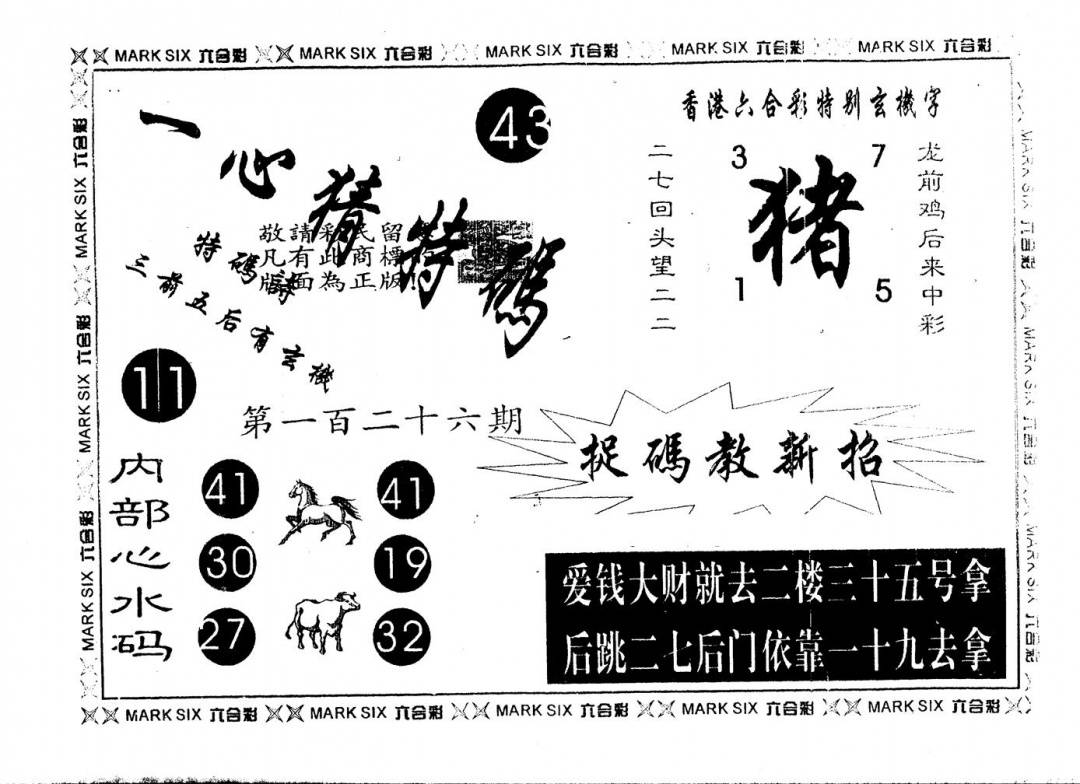 MARK SIX 六合彩 MARK SIX 六合彩 MARK SIX 六合彩 MARK SIX 六合彩 MARK SIX 六合彩
MARK SIX 六合彩 MARK SIX 六合彩 MARK SIX 六合彩
一心猜特碼
43
敬請彩民留
凡有此商標
版面為正版!
特碼詩
三前五后有玄機
11
第一百二十六期
香港六合彩特别玄機字
二七回头望二二
3 7
猪
1 5
龙前鸡后来中彩
捉碼教新招
内部心水码
41 41
30 19
27 32
爱钱大财就去二楼三十五号拿
后跳二七后门依靠一十九去拿
MARK SIX 六合彩 MARK SIX 六合彩 MARK SIX 六合彩
MARK SIX 六合彩 MARK SIX 六合彩 MARK SIX 六合彩 MARK SIX 六合彩 MARK SIX 六合彩